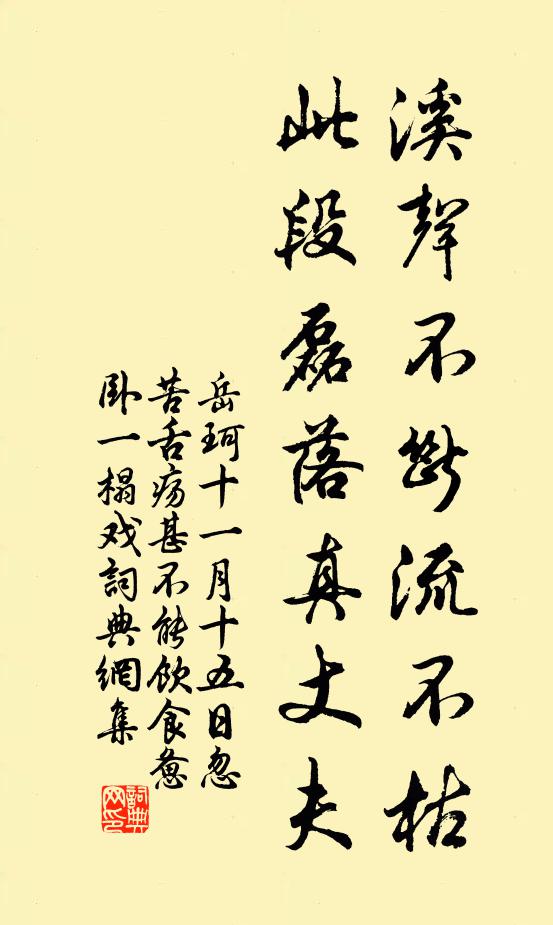 溪聲不斷流不枯
此段磊落真丈夫
岳珂十一月十五日忽
苦舌瘍甚不能飲食憊
卧一榻戏詞典網集
詞典网印